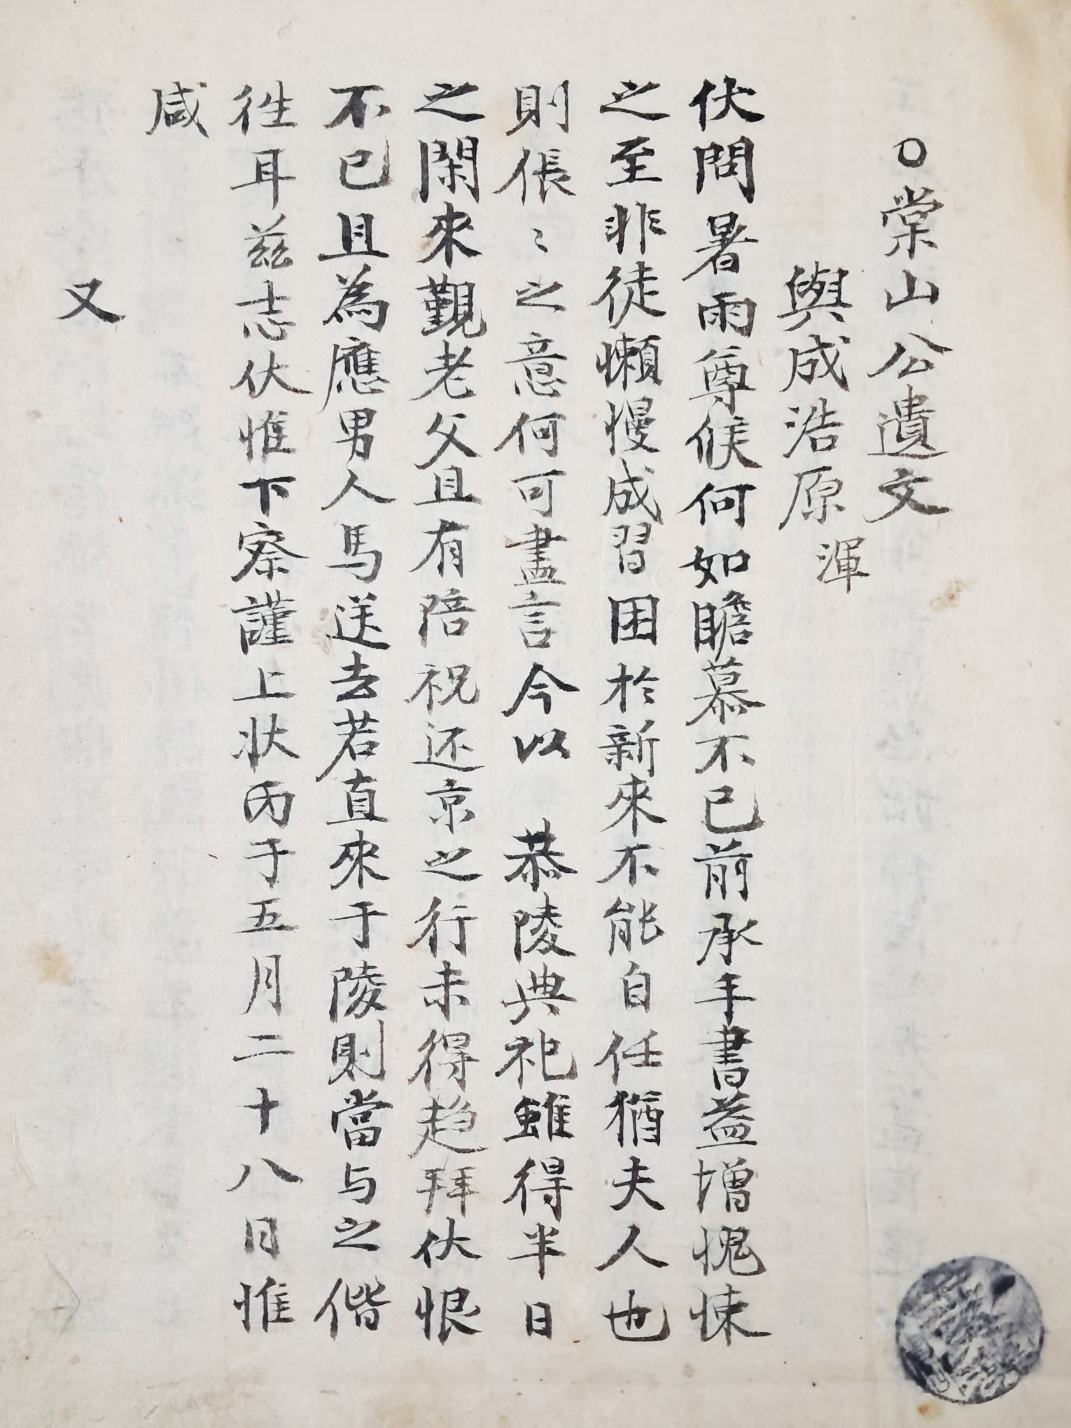 ○棠山公遺文
與成浩原渾
伏問暑雨尊候何如瞻慕不已前承手書益增愧悚
之至非徒懶慢成習困於新來不能自任猶夫人也
則倀〻之意何可盡言今以 恭陵典祀雖得半日
之閑來覲老父且有陪祝还京之行未得趍拜伏恨
不已且為應男人馬送去若直來于陵則當与之偕
徃耳兹志伏惟下察謹上狀丙子五月二十八日惟
咸
又